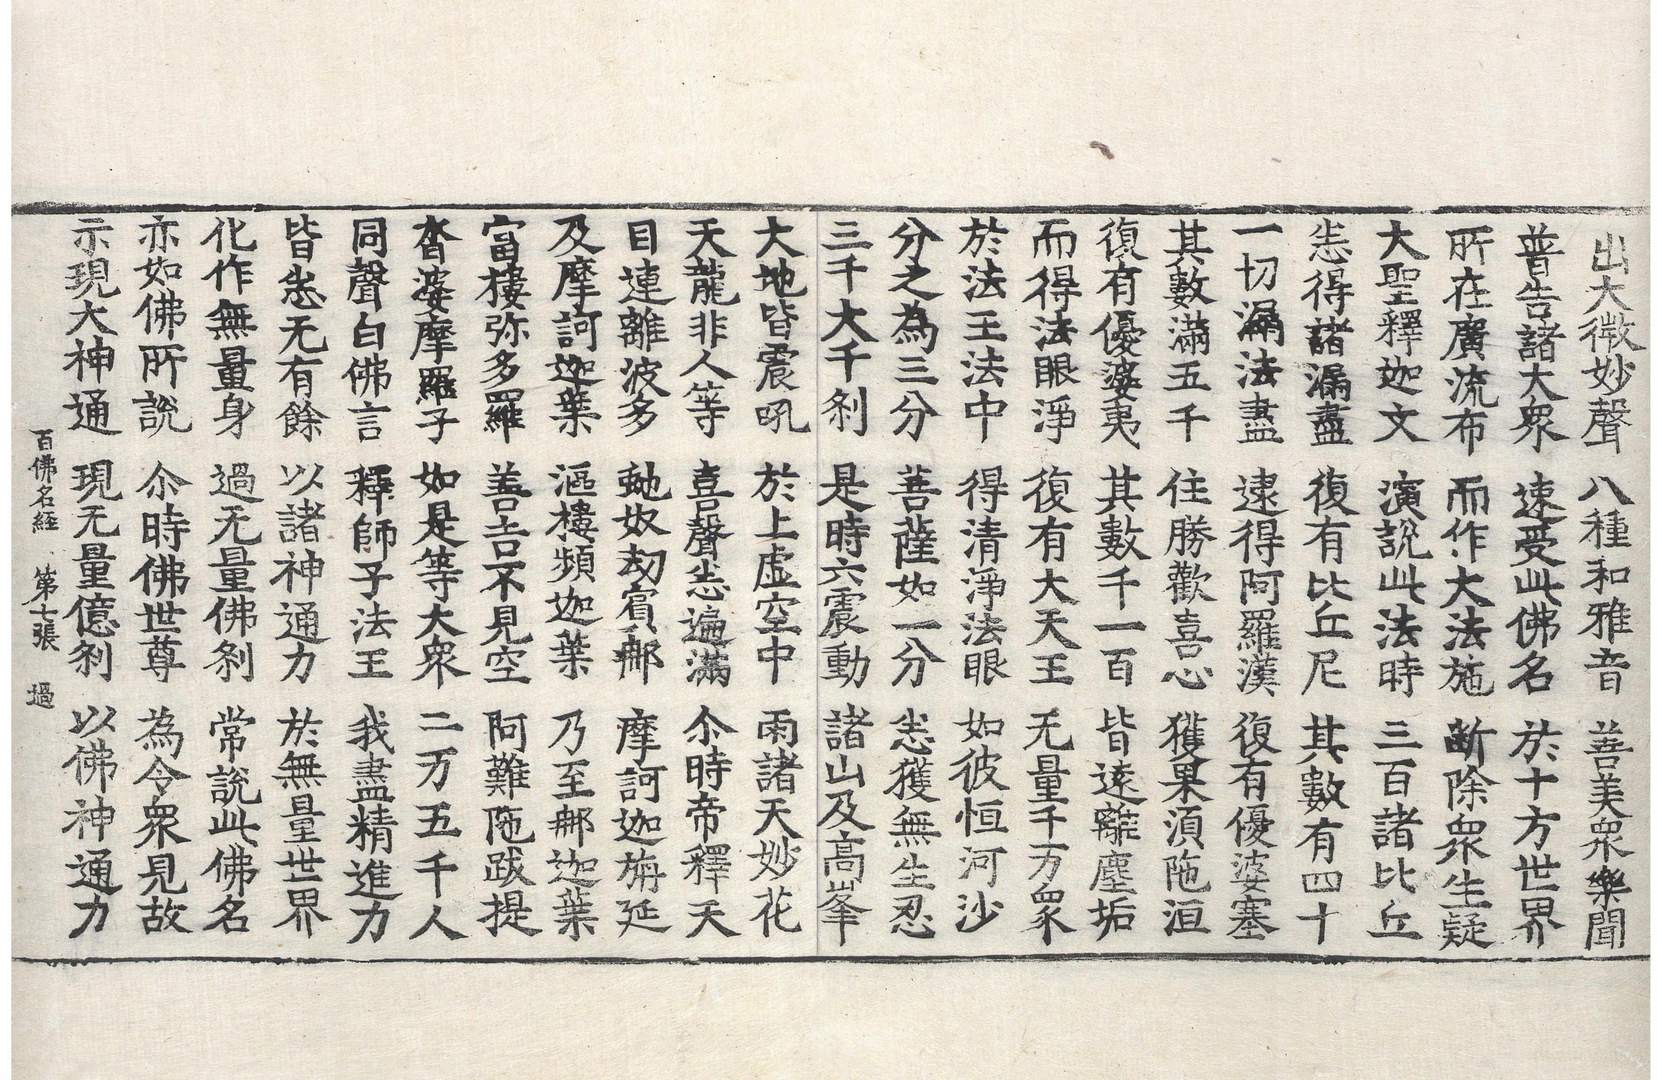 出大微妙聲 八種和雅音 善美衆樂聞
普告諸大衆 速受此佛名 於十方世界
所在廣流布 而作大法施 斷除衆生疑
大聖釋迦文 演說此法時 三百諸比丘
悉得諸漏盡 復有比丘尼 其數有四十
一切漏法盡 逮得阿羅漢 復有優婆塞
其數滿五千 住勝歡喜心 獲果湏陁洹
復有優婆夷 其數千一百 皆遠離塵垢
而得法眼淨 復有大天王 无量千万衆
於法王法中 得清淨法眼 如彼恒河沙
分之為三分 菩薩如一分 悉獲無生忍
三千大千刹 是時六震動 諸山及高峯
大地皆震吼 於上虛空中 雨諸天妙花
天龍非人等 喜聲悉遍滿 尒時帝釋天
目連離波多 㔹奴劫賓郍 摩訶迦旃延
及摩訶迦葉 漚樓頻迦葉 乃至郍迦葉
富樓弥多羅 善吉不見空 阿難陁跋提
沓婆摩羅子 如是等大衆 二万五千人
同聲白佛言 釋師子法王 我盡精進力
皆悉无有餘 以諸神通力 於無量世界
化作無量身 過无量佛刹 常說此佛名
亦如佛所說 尒時佛世尊 為令衆見故
示現大神通 現无量億刹 以佛神通力
百佛名経 第七張 過